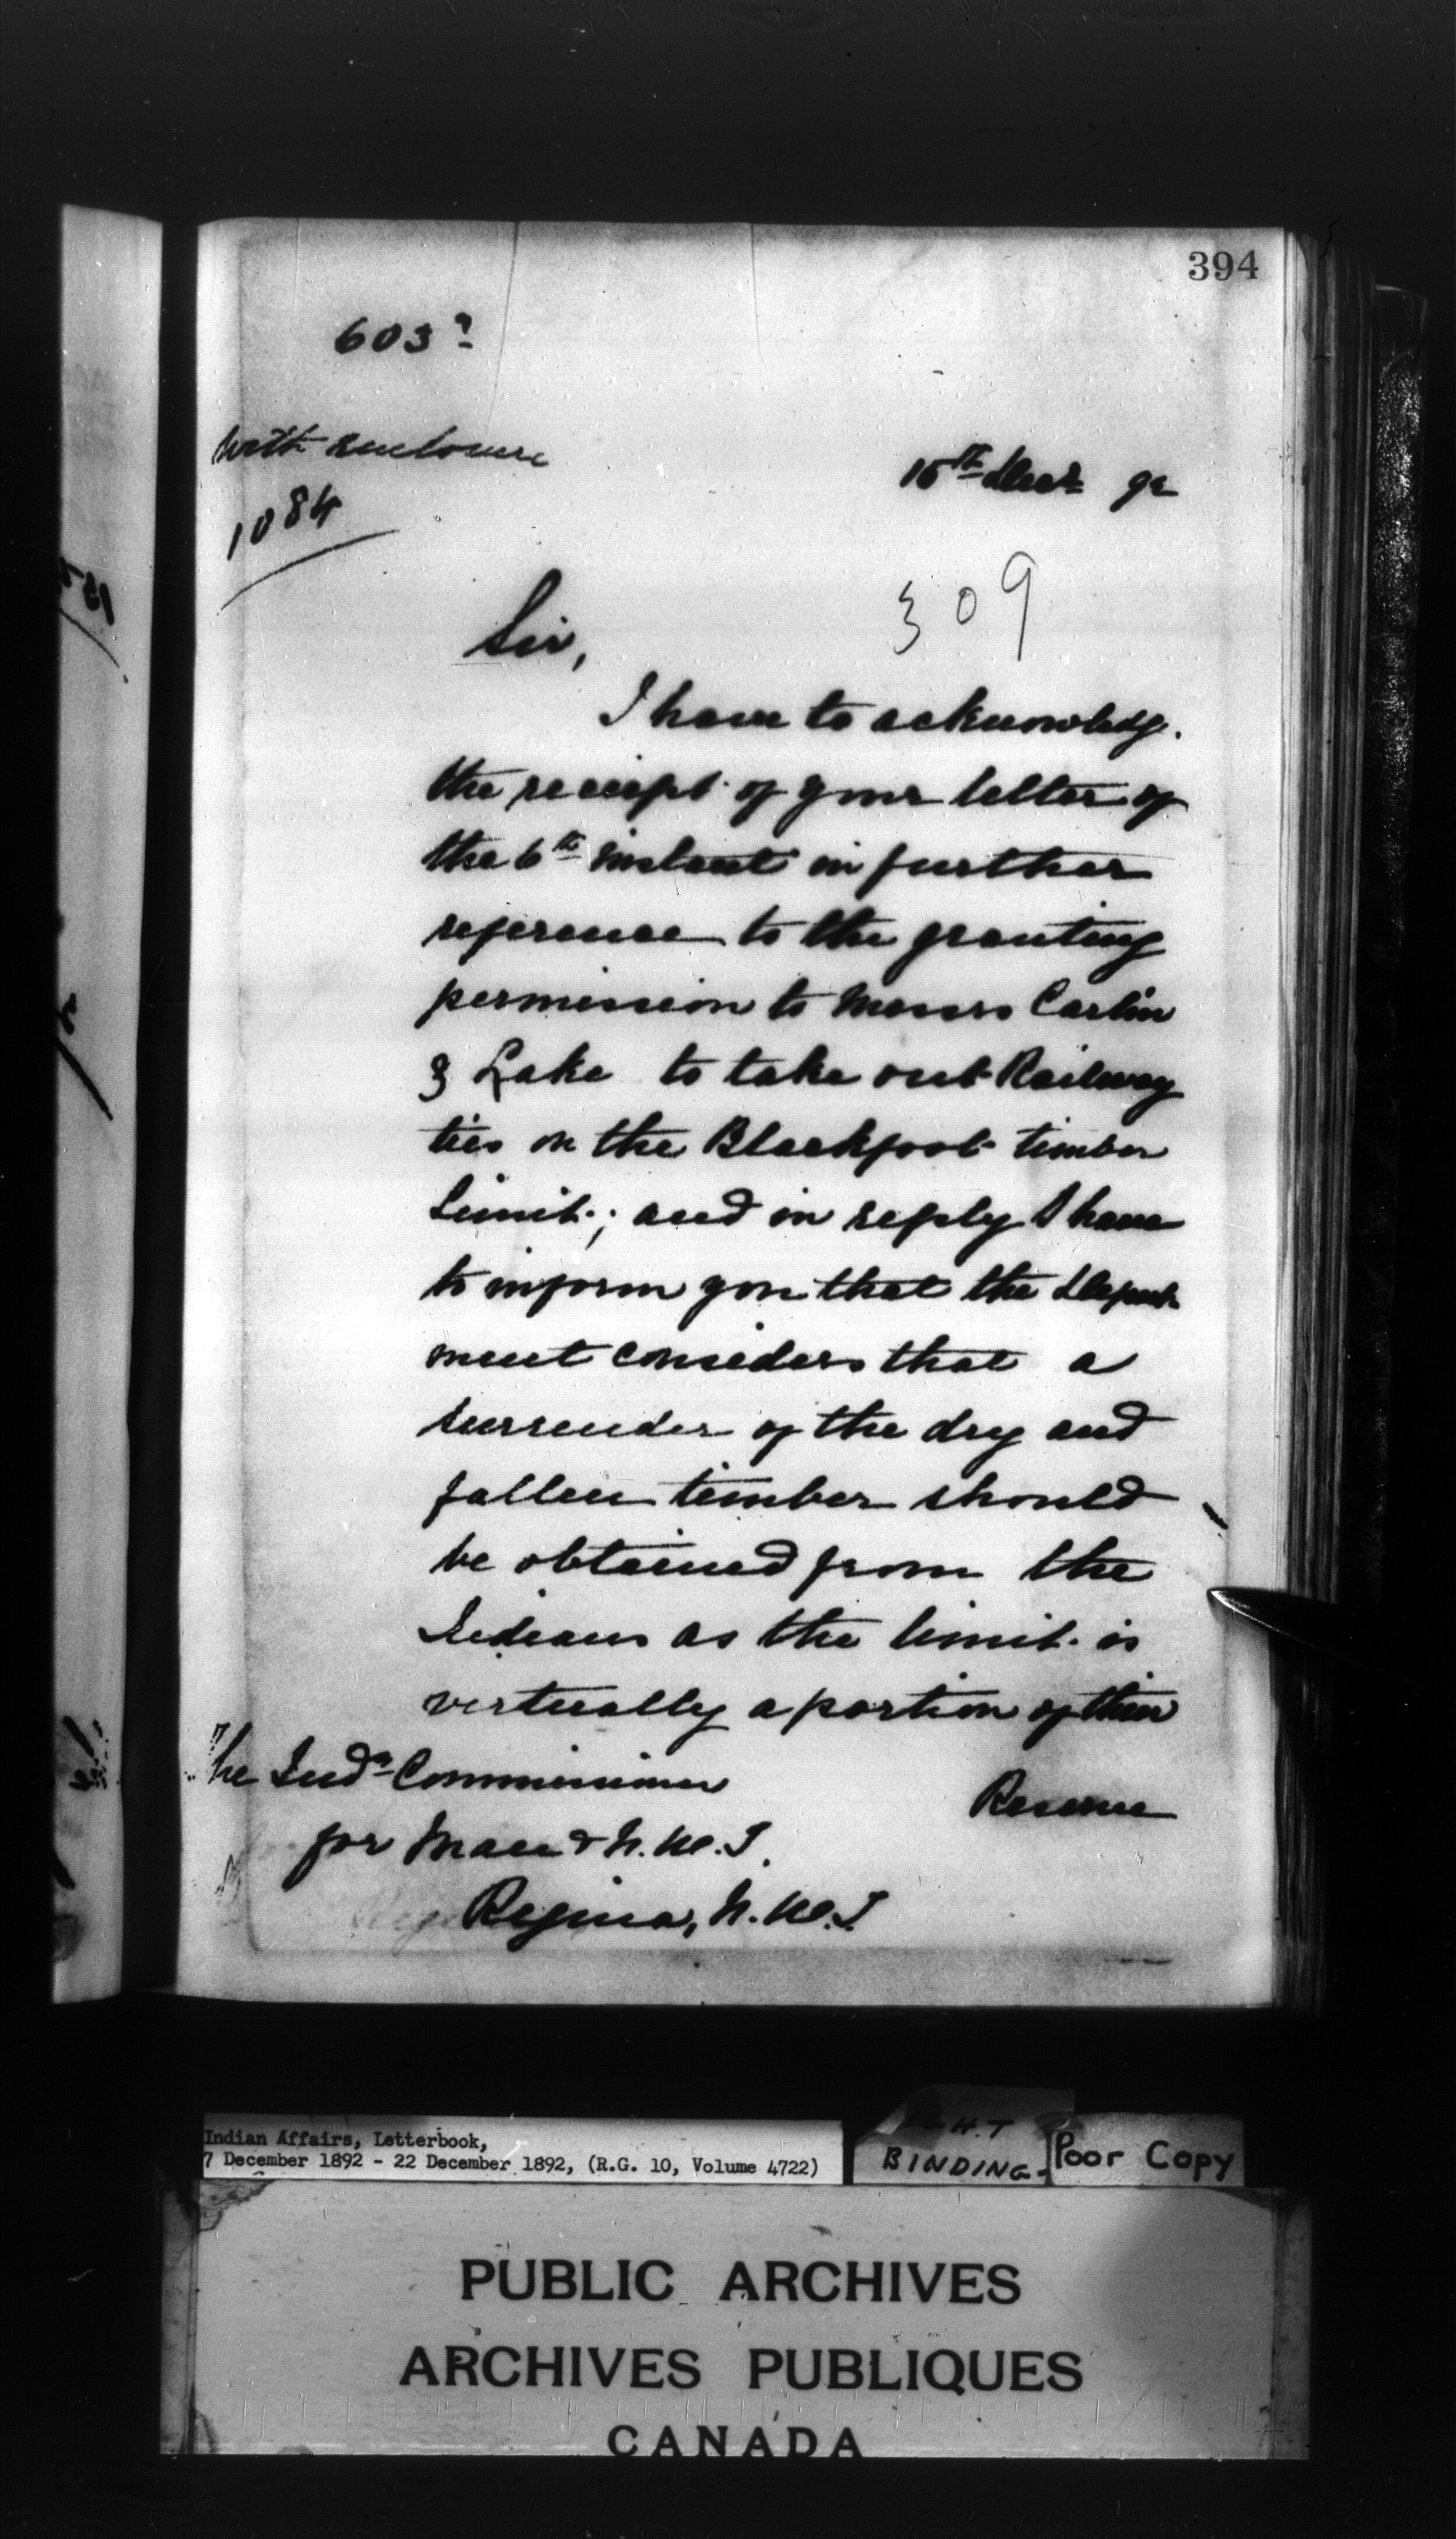 394
603
With enclosure
15th Decr 92
1084
309
Sir,
I have to acknowledge
the receipt of your letter of
the 6th instant in further
reference to the granting
permission to Messrs Carlin
& Lake to take out Railway
ties on the Blackfoot timber
Limit; and in reply I have
to inform you that the Depart
ment considers that a
surrender of the dry and
fallen timber should
be obtained from the
Indians as the limit is
virtually a portion of their
Reserve
The Indn Commissioner
for Man & N.W.T.
Regina, N.W.T.
Indian Affairs, Letterbook,
7 December 1892 - 22 December 1892, (R.G. 10, Volume 4722)
BINDING
Poor Copy
PUBLIC ARCHIVES
ARCHIVES PUBLIQUES
CANADA